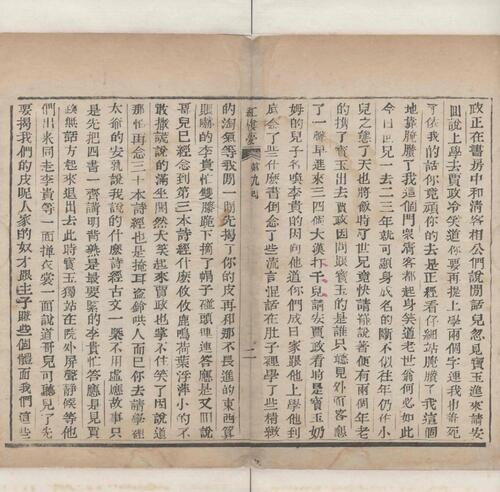 政正在書房中和清客相公們說閒話兒忽見寶玉進來請安
回說上學去賈政冷笑道你要再提上學兩個字連我也羞死
了依我的話你竟頑你的去是正經看仔細站腌臢了我這個
地靠腌臢了我這個門衆清客都起身笑道老世翁何必如此
今日世兄一去二三年就可顯身成名的斷不似往年仍作小
兒之態了天也將飯時了世兄竟快請罷說着便有兩個年老
的攜了寶玉出去賈政因問跟寶玉的是誰只聽見外面答應
了一聲早進來三四個大漢打千兒請安賈政看時是寶玉奶
姆的兒子名喚李貴的因向他道你們成日家跟他上學他到
底念了些什麽書倒念了些流言混話在肚子裡學了些精緻
紅樓夢 第九回 二
的淘氣等我閒一閒先揭了你的皮再和那不長進的東西算
賬嚇的李貴忙雙膝跪下摘了帽子碰頭連連答應是又回說
哥兒已經念到第三本詩經什麽攸攸鹿鳴荷葉浮萍小的不
敢撒謊說的滿坐閧然大笑起來賈政也掌不住笑了因說道
那怕再念三十本詩經也是掩耳盜鈴哄人而已你去請學裡
太爺的安就說我說的什麽詩經古文一槩不用虛應故事只
是先把四書一齊講明背熟是最要緊的李貴忙答應是見賈
政無話方起來退出去此時寶玉獨站在院外屏聲靜候等他
們出來同走李貴等一面撣衣裳一面說道哥兒可聽見了先
要揭我們的皮呢人家的奴才跟主子賺些個體面我們這些